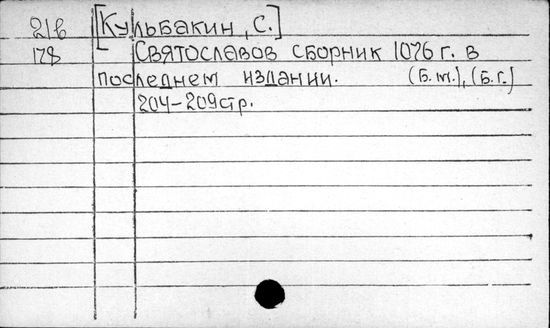 21б [Кульбакин, С.]
178 Святославов сборник 1076 г. в
последнем издании. (Б.м.), (Б.г.)
204-209стр.